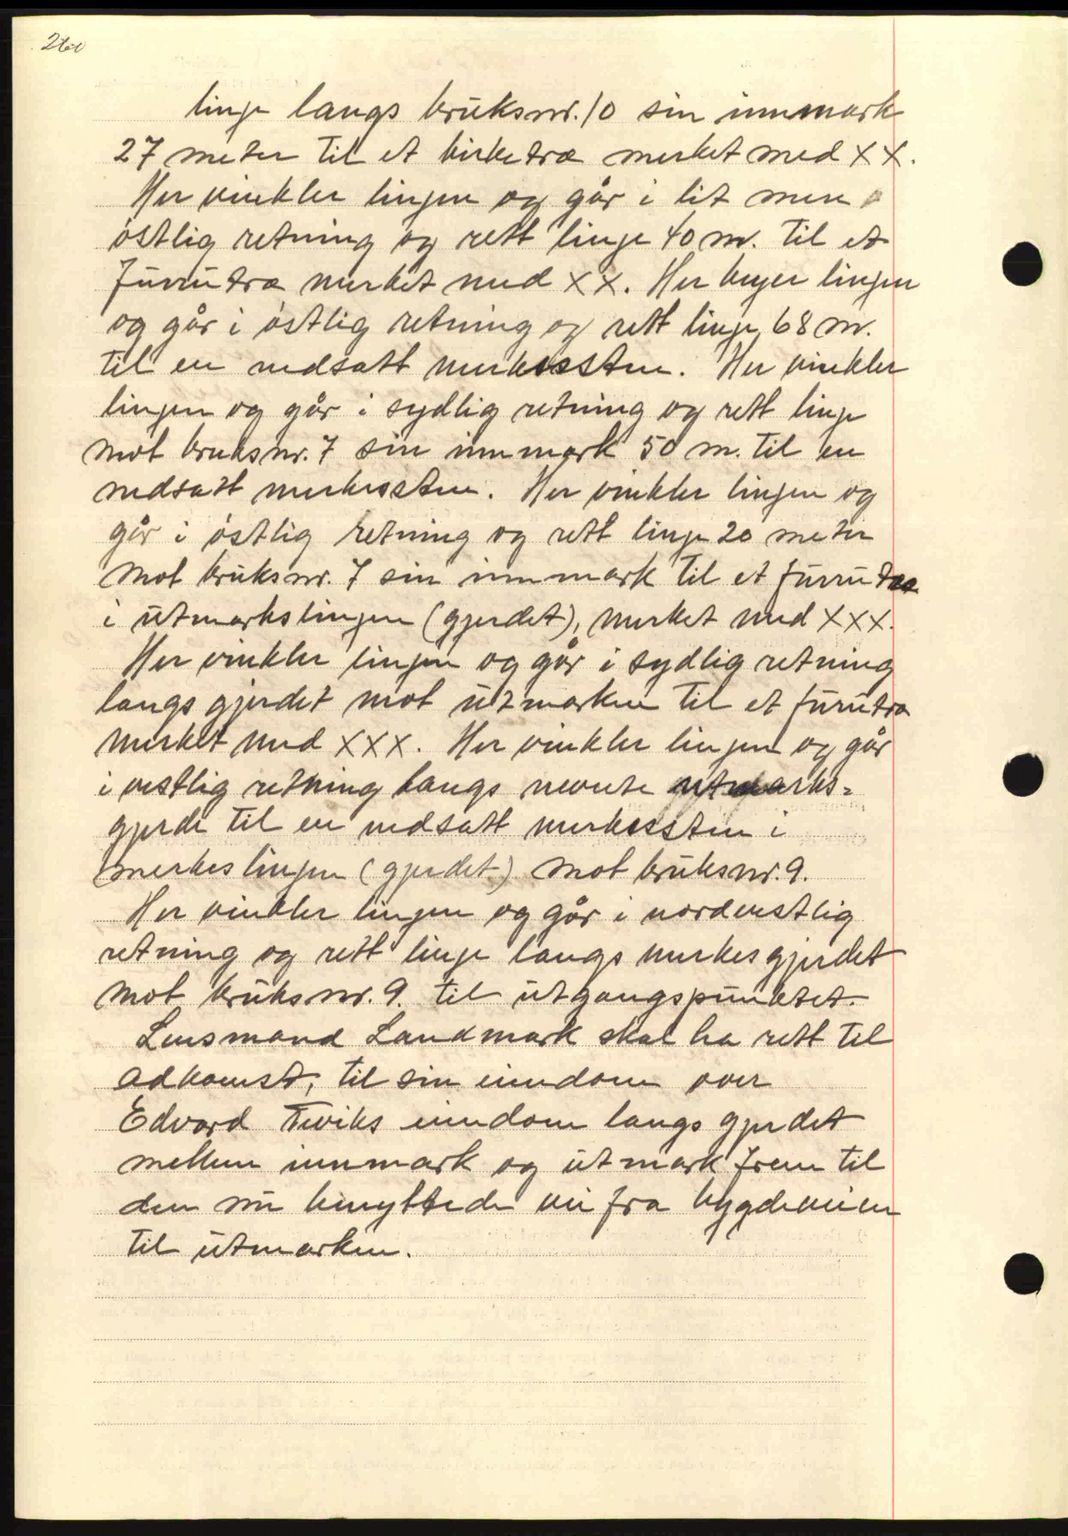 260
linje langs bruksnr. 10 sin innmark
27 meter til et birketræ merket med XX.
Her vinkler linjen og går i litt mere
østlig retning og rett linje 40 m. til et
furrutræ merket med XX. Her bøyer linjen
og går i østlig retning og rett linje 68 m.
til en nedsatt merkessten. Her vinkler
linjen og går i sydlig retning og rett linje
mot bruksnr. 7 sin innmark 50 m. til en
nedsatt merkessten. Her vinkler linjen og
går i østlig retning og rett linje 20 meter
mot bruksnr. 7 sin innmark til et furrutræ
i utmarkslinjen (gjerdet), merket med XXX.
Her vinkler linjen og går i sydlig retning
langs gjerdet mot utmarken til et furutræ
merket med XXX. Her vinkler linjen og går
i vestlig retning langs nevnte utmarks-
gjerde til en nedsatt merkessten i
merkeslinjen (gjerdet) mot bruksnr. 9.
Her vinkler linjen og går i nordvestlig
retning og rett linje langs merkesgjerdet
mot bruksnr. 9. til utgangspunktet.
Lensmand Landmark skal ha rett til
adkomst, til sin eiendom over
Edvard Tviks eiendom langs gjerdet
mellem innmark og utmark frem til
den nu benyttede vei fra bygdeveien
til utmarken.